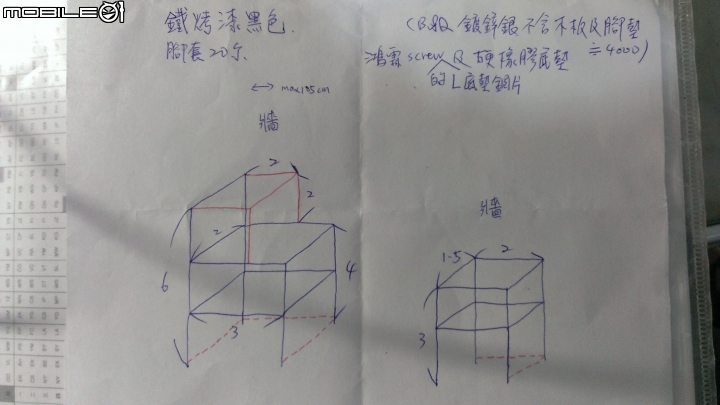 MOBILE01
鐵烤漆黑色
腳套20尔
(B&Q 鍍鋅銀不含木板及腳墊
≒4000)
鴻霖screw及硬橡膠底墊
的L底墊鋼片
↔ max135cm
牆
2
2
2
6
4
3
牆
1.5
2
3